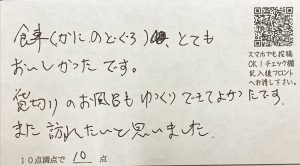 食事(かにのどぐろ)、とても
おいしかったです。
貸切りのお風呂もゆっくりできてよかったです。
また訪れたいと思いました。
10点満点で 10 点
スマホでも投稿
OK!チェック欄
記入後フロント
へお渡し下さい。